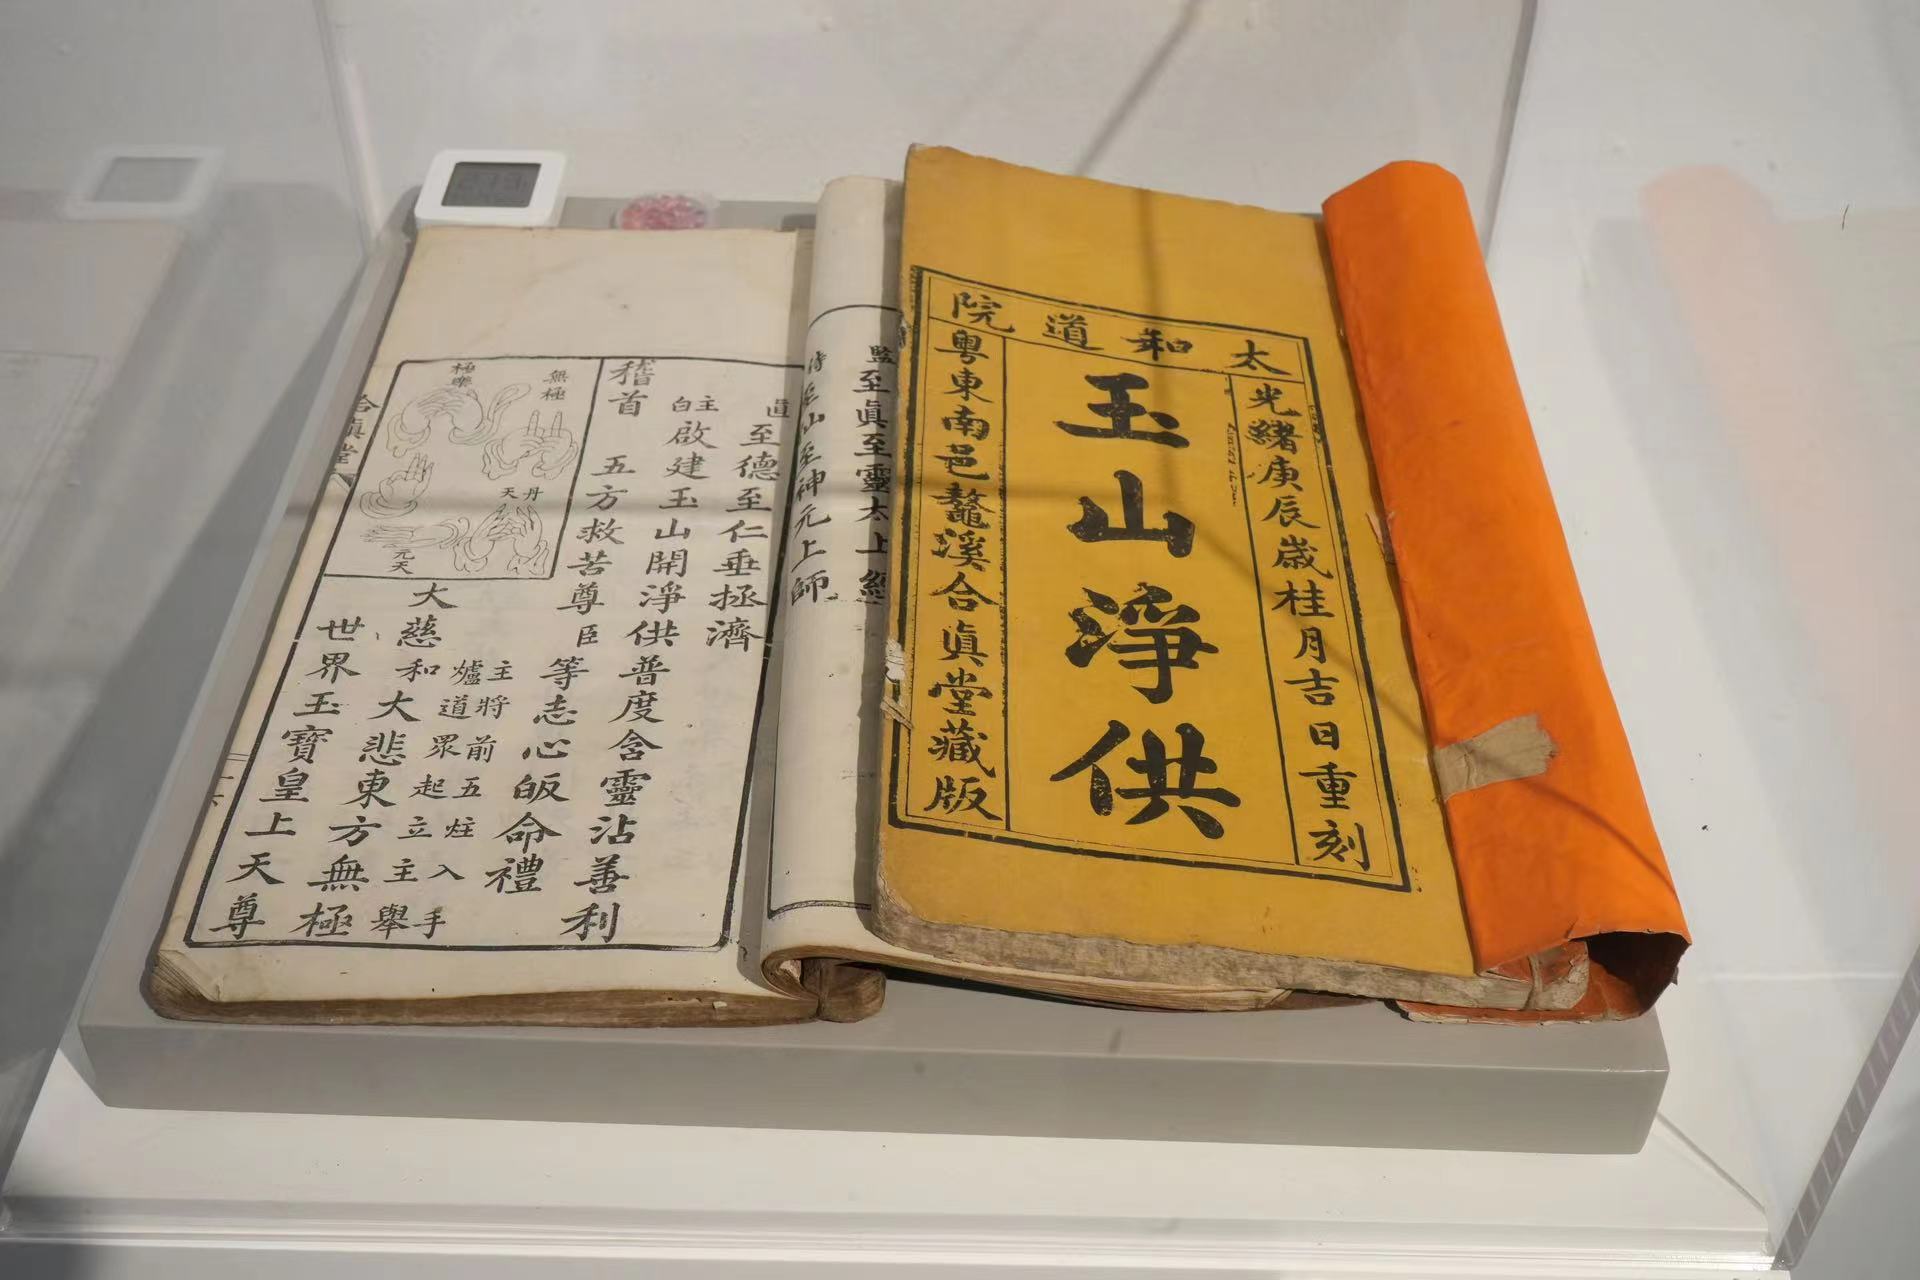 太和道院
光緒庚辰歲桂月吉日重刻
玉山淨供
粵東南邑鰲溪合眞堂藏版
監至眞至靈太上經
至山至神元上師
至德至仁垂拯濟
主白
啟建玉山開淨供普度含靈沾善利
稽首
五方救苦尊臣等志心皈命禮
主將前五炷入手
爐道眾起立主舉
大慈和大悲東方無極
世界玉寶皇上天尊
無極
極樂
丹天
元天
合眞堂